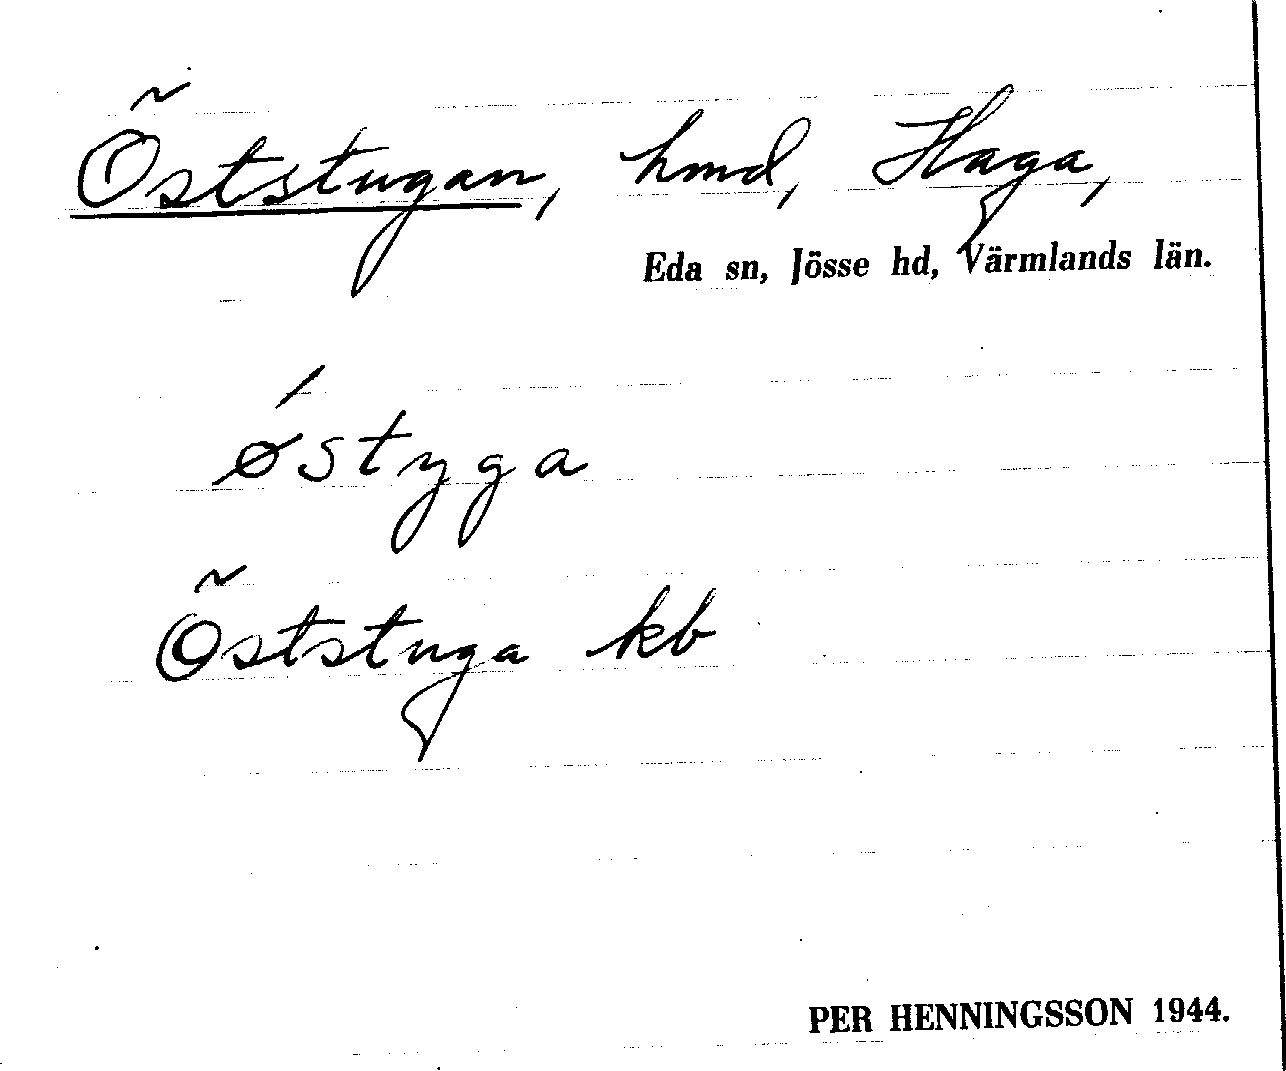 Öststugan, hmd, Haga,
Eda sn, Jösse hd, Värmlands län.
östyga
Öststuga kb
PER HENNINGSSON 1944.